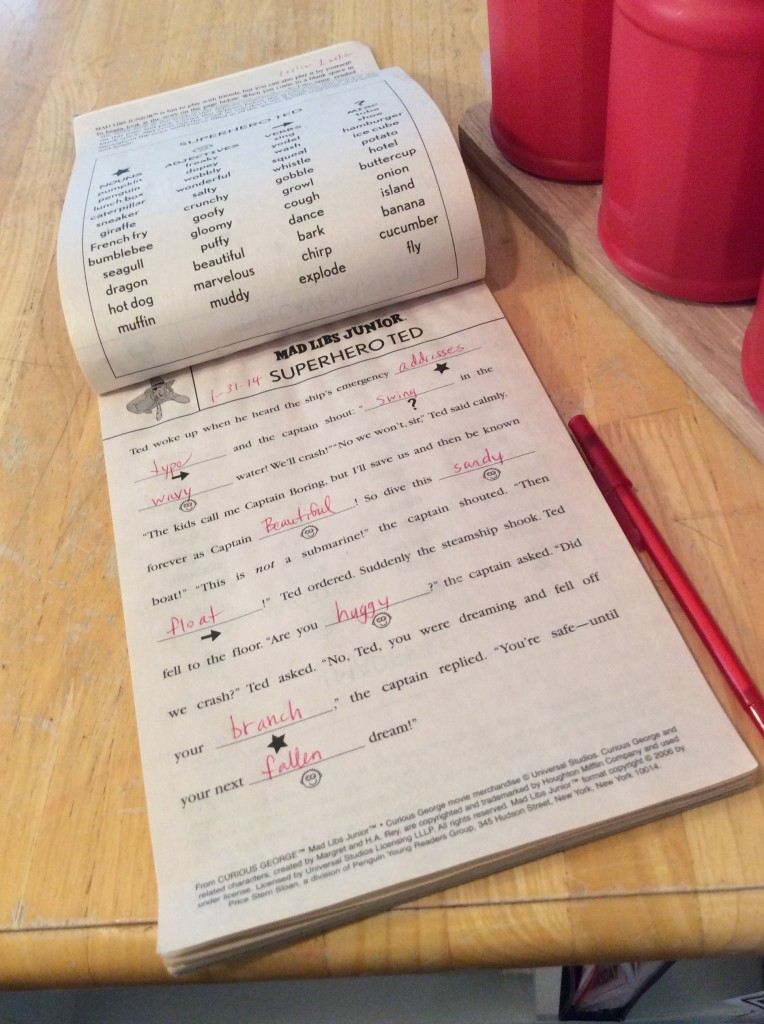 MAD LIBS JUNIOR™ is fun to play with friends, but you can also play it by yourself!
SUPERHERO TED
NOUNS ADJECTIVES VERBS ? MISC.
pumpkin freaky sing tuba
penguin dopey yodel shoe
lunch box wobbly wash hamburger
caterpillar wonderful squeal ice cube
sneaker salty whistle potato
giraffe crunchy gobble hotel
French fry goofy growl buttercup
bumblebee gloomy cough onion
seagull puffy dance island
dragon beautiful bark banana
hot dog marvelous chirp cucumber
muffin muddy explode fly
MAD LIBS JUNIOR™
1-31-14 SUPERHERO TED
Ted woke up when he heard the ship's emergency addresses
type and the captain shout: "swing ? in the
wavy water! We'll crash!" "No we won't, sir," Ted said calmly.
"The kids call me Captain Boring, but I'll save us and then be known
forever as Captain Beautiful ! So dive this sandy
boat!" "This is not a submarine!" the captain shouted. "Then
float !" Ted ordered. Suddenly the steamship shook. Ted
fell to the floor. "Are you huggy ?" the captain asked. "Did
we crash?" Ted asked. "No, Ted, you were dreaming and fell off
your branch ," the captain replied. "You're safe—until
your next fallen dream!"
From CURIOUS GEORGE™ Mad Libs Junior™ • Curious George movie merchandise © Universal Studios. Curious George and
related characters, created by Margret and H.A. Rey, are copyrighted and trademarked by Houghton Mifflin Company and used
under license. Licensed by Universal Studios Licensing LLLP. All rights reserved. Mad Libs Junior™ format copyright © 2006 by
Price Stern Sloan, a division of Penguin Young Readers Group, 345 Hudson Street, New York, New York 10014.